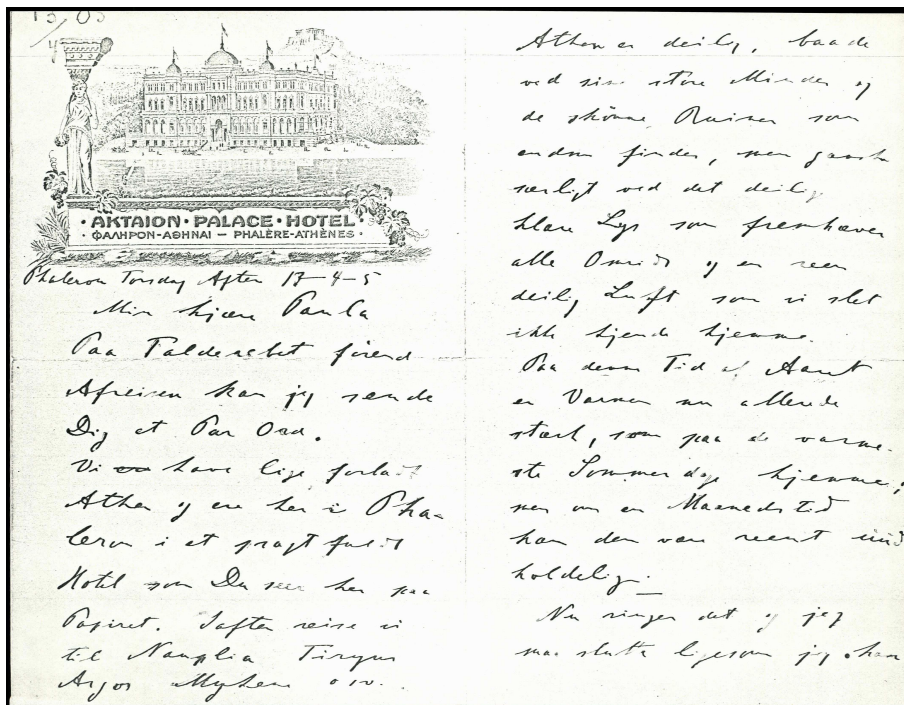 13/4 05
· AKTAION · PALACE · HOTEL ·
· ΦΑΛΗΡΟΝ-ΑΘΗΝΑΙ — PHALÈRE-ATHÈNES ·
Phaleron Torsdag Aften 13-4-5
Min kjære Paula
Paa Falderebet førend
Afreisen kan jeg sende
Dig et Par Ord.
Vi have lige forladt
Athen og ere her i Pha-
leron i et pragtfuldt
Hotel som Du seer her paa
Papiret. Iaften reise vi
til Nauplia Tiryns
Argos Mykene osv.
Athen er deilig, baade
ved sine store Minder og
de skønne Ruiner som
endnu findes, men ganske
særligt ved det deilige
klare Lys som fremhæver
alle Omrids og en reen
deilig Luft som vi slet
ikke kjende hjemme.
Paa denne Tid af Aaret
er Varmen nu allerede
stærk, som paa de varme-
ste Sommerdage hjemme,
men om en Maanedstid
kan den være reent uud
holdelig.
Nu ringer det og jeg
maa slutte ligesom jeg